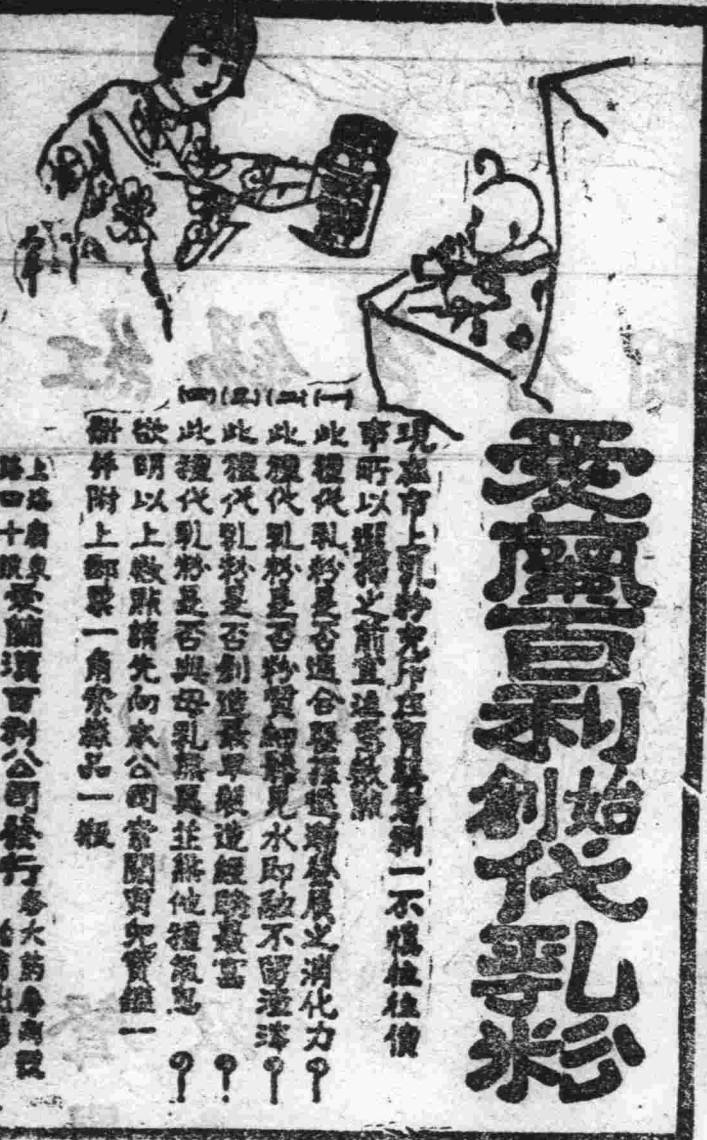 愛蘭百利始創代乳粉
現在市上乳粉充斥
事所以
(一)此種代乳粉是否適合嬰孩逐漸發展之消化力?
(二)此種代乳粉是否粉質細膩見水即融不留渣滓?
(三)此種代乳粉是否創造最早製造經驗最富?
(四)此種代乳粉是否與母乳無異並無他種氣息?
欲明以上數點請先向本公司索閱育兒寶鑑一
冊并附上郵票一角索樣品一瓶
上海廣東路四十號愛蘭漢百利公司發行 各大藥房